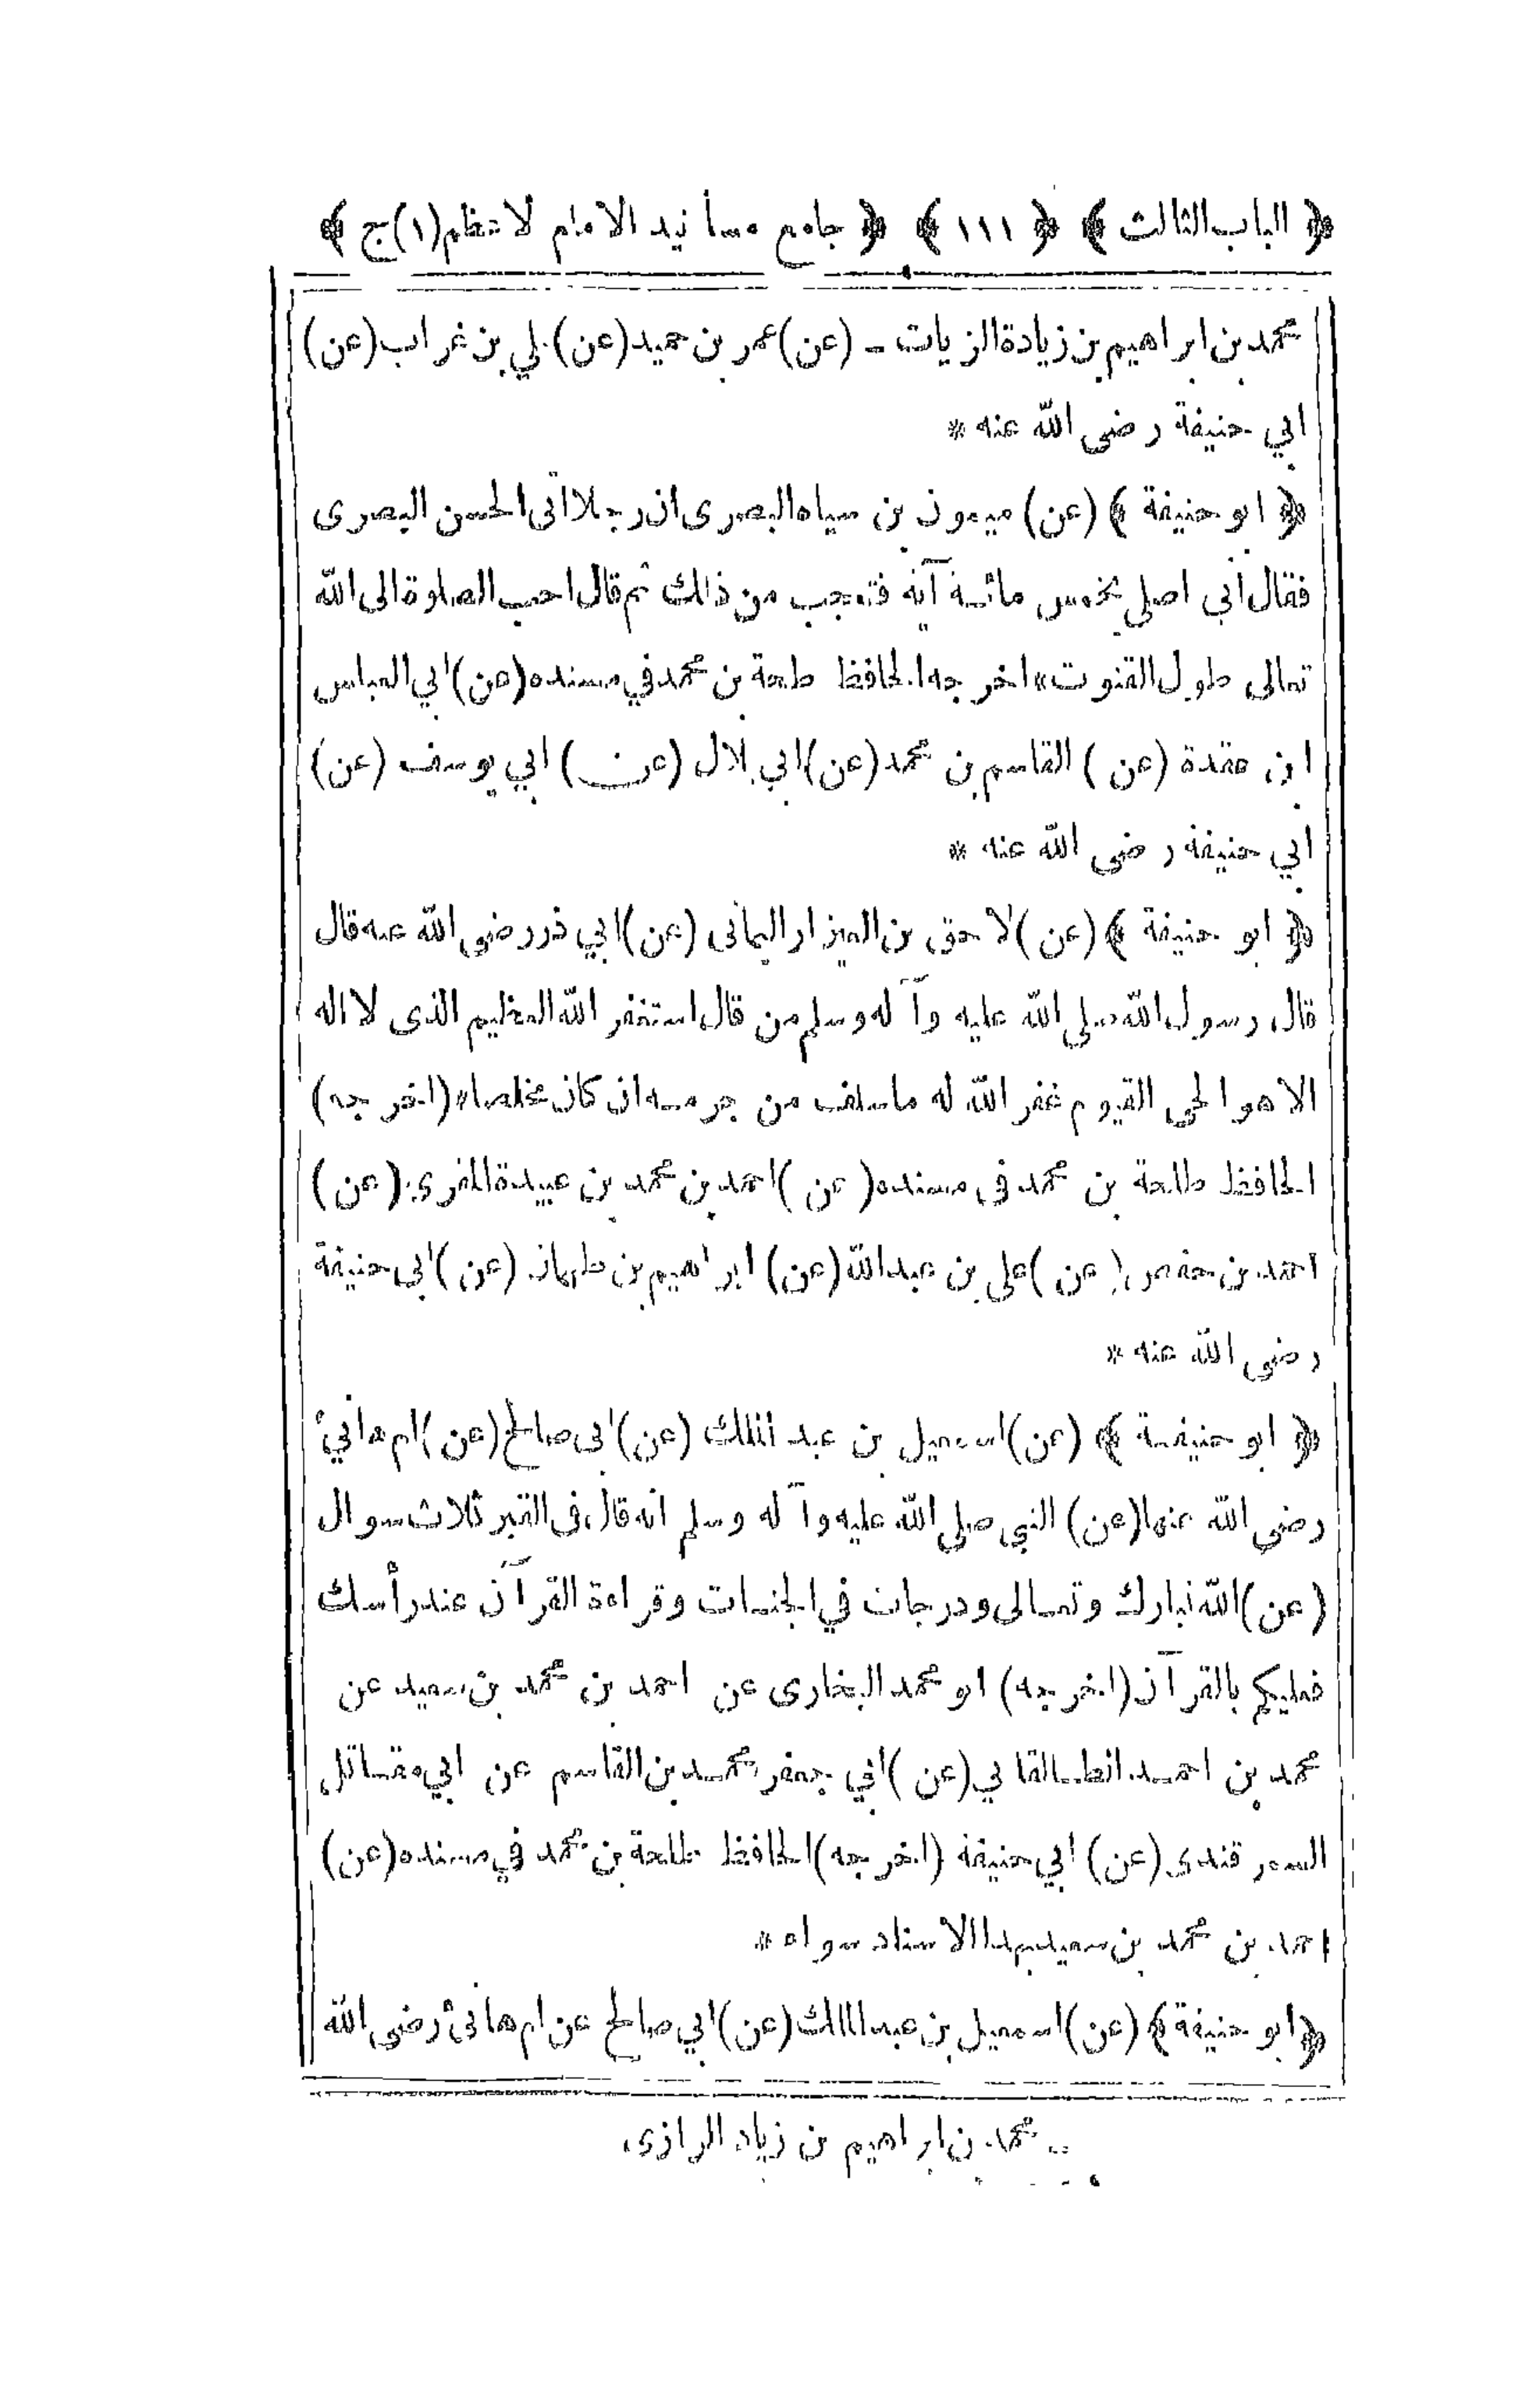 ﴿ الباب الثالث ﴾ ﴿ ١١١ ﴾ ﴿ جامع مسانيد الامام الاعظم (١) ج ﴾
محمد بن ابراهيم بن زيادة الزيات ـ (عن) عمر بن حميد (عن) علي بن غراب (عن)
ابي حنيفة رضى الله عنه *
﴿ ابو حنيفة ﴾ (عن) ميمون بن سياه البصرى ان رجلا اتى الحسن البصرى
فقال أنى اصلى بخمس مائة آية فتعجب من ذلك ثم قال احب الصلوة الى الله
تعالى طول القنوت * اخرجه الحافظ طلحة بن محمد في مسنده (عن) ابي العباس
ابن عقدة (عن) القاسم بن محمد (عن) ابي بلال (عن) ابي يوسف (عن)
ابي حنيفة رضى الله عنه *
﴿ ابو حنيفة ﴾ (عن) لاحق بن العيزار اليمانى (عن) ابي ذر رضى الله عنه قال
قال رسول الله صلى الله عليه وآله وسلم من قال استغفر الله العظيم الذى لا اله
الا هو الحى القيوم غفر الله له ما سلف من جرمه ان كان مخلصا * (اخرجه)
الحافظ طلحة بن محمد فى مسنده (عن) احمد بن محمد بن عبيدة (عن)
احمد بن حفص (عن) على بن عبد الله (عن) ابراهيم بن طهمان (عن) ابى حنيفة
رضى الله عنه *
﴿ ابو حنيفة ﴾ (عن) اسمعيل بن عبد الملك (عن) ابى صالح (عن) ام هانيء
رضى الله عنها (عن) النبي صلى الله عليه وآله وسلم انه قال فى القبر ثلاث سوال
(عن) الله تبارك وتعالى ودرجات في الجنات وقراءة القرآن عند رأسك
فعليكم بالقرآن (اخرجه) ابو محمد البخارى عن احمد بن محمد بن سعيد عن
محمد بن احمد الطالقاني (عن) أبي جعفر محمد بن القاسم عن ابي مقاتل
السمرقندى (عن) أبي حنيفة (اخرجه) الحافظ طلحة بن محمد في مسنده (عن)
احمد بن محمد بن سعيد بهذا الاسناد سواء *
﴿ ابو حنيفة ﴾ (عن) اسمعيل بن عبد الملك (عن) ابي صالح عن ام هانىء رضى الله
محمد بن ابراهيم بن زياد الرازى